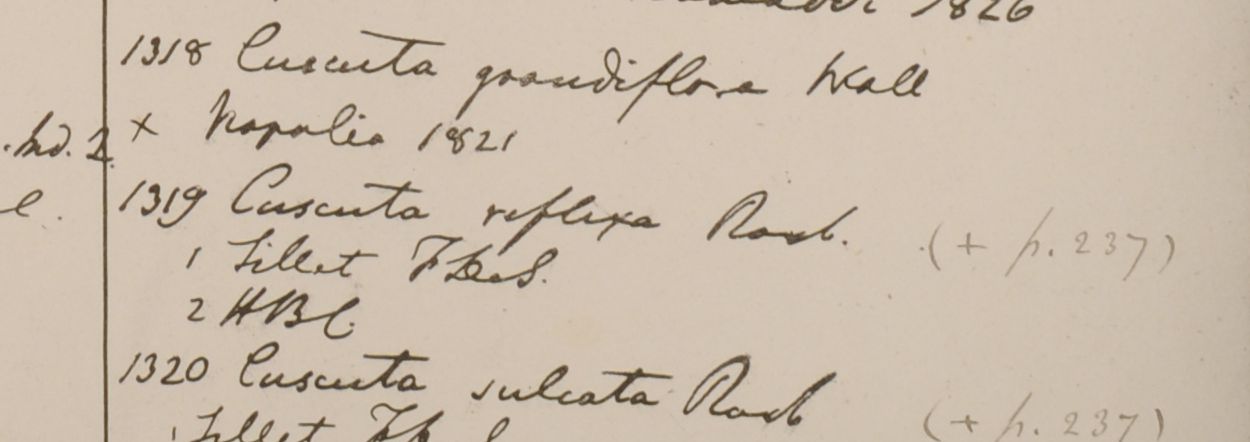 1826
1318 Cuscuta grandiflora Wall
.hd. 2 × Napalia 1821
1319 Cuscuta reflexa Roxb. (+ p. 237)
1 Sillet
2 HBC
1320 Cuscuta sulcata Roxb (+ p. 237)
1 Sillet